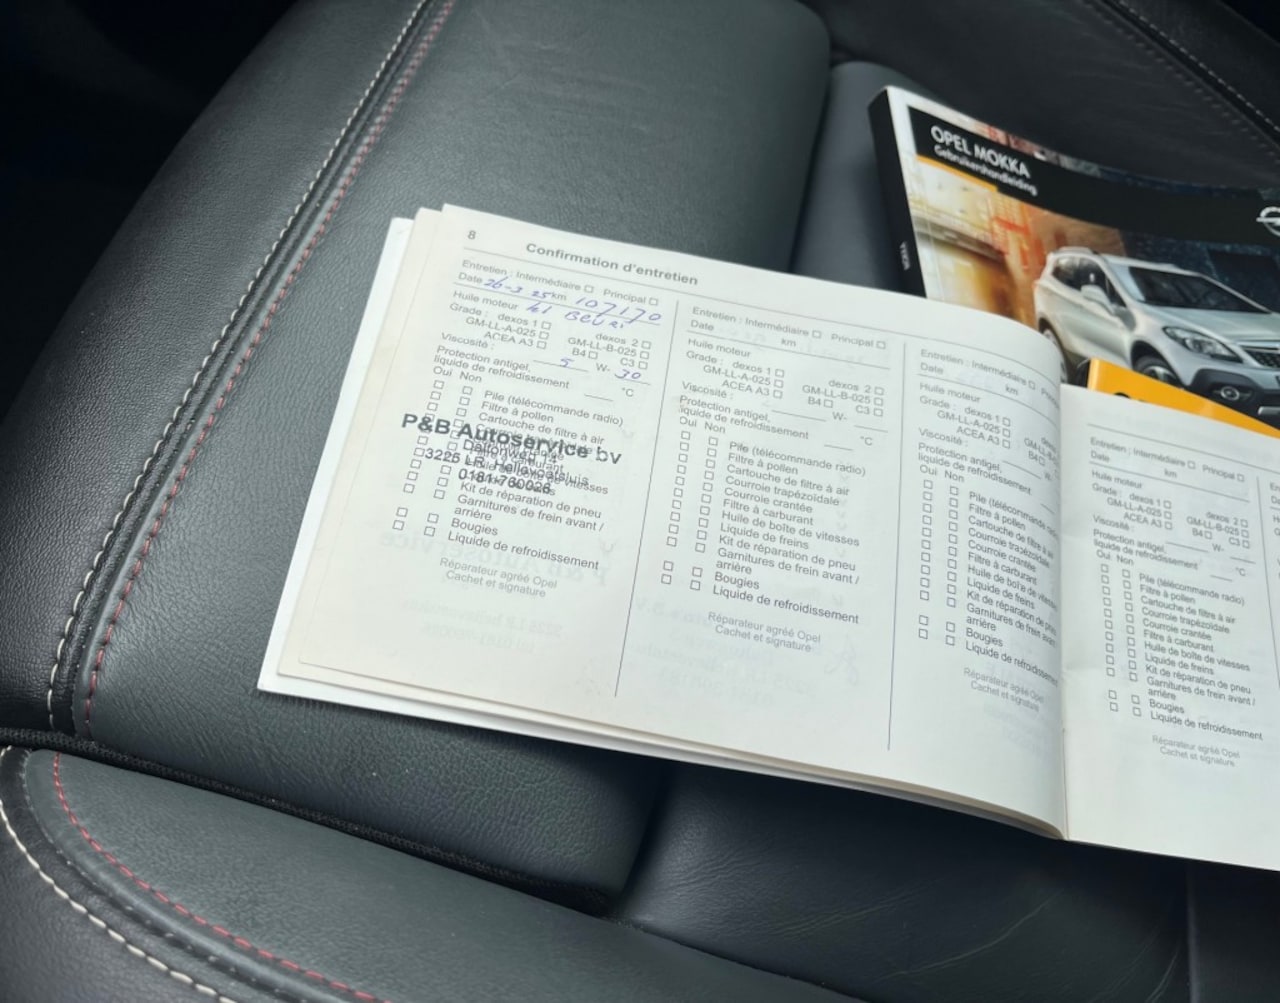 OPEL MOKKA
Gebruikershandleiding
8
Confirmation d'entretien
Entretien : Intermédiaire □ Principal □
Date 26-3 25 km 107170
Huile moteur
Grade : dexos 1 □ dexos 2 □
GM-LL-A-025 □ GM-LL-B-025 □
ACEA A3 □ B4 □ C3 □
Viscosité : 5 W- 30
Protection antigel,
liquide de refroidissement °C
Oui Non
□ □ Pile (télécommande radio)
□ □ Filtre à pollen
□ □ Cartouche de filtre à air
P&B Autoservice bv
3225 LR Hellevoetsluis
0181-760026
□ □ Kit de réparation de pneu
□ □ Garnitures de frein avant /
arrière
□ □ Bougies
□ □ Liquide de refroidissement
Réparateur agréé Opel
Cachet et signature
Entretien : Intermédiaire □ Principal □
Date km
Huile moteur
Grade : dexos 1 □ dexos 2 □
GM-LL-A-025 □ GM-LL-B-025 □
ACEA A3 □ B4 □ C3 □
Viscosité : W-
Protection antigel,
liquide de refroidissement °C
Oui Non
□ □ Pile (télécommande radio)
□ □ Filtre à pollen
□ □ Cartouche de filtre à air
□ □ Courroie trapézoïdale
□ □ Courroie crantée
□ □ Filtre à carburant
□ □ Huile de boîte de vitesses
□ □ Liquide de freins
□ □ Kit de réparation de pneu
□ □ Garnitures de frein avant /
arrière
□ □ Bougies
□ □ Liquide de refroidissement
Réparateur agréé Opel
Cachet et signature
Entretien : Intermédiaire □
Date km
Huile moteur
Grade : dexos 1 □
GM-LL-A-025 □
ACEA A3 □ B4 □
Viscosité : W-
Protection antigel,
liquide de refroidissement
Oui Non
□ □ Pile (télécommande
□ □ Filtre à pollen
□ □ Cartouche de filtre à
□ □ Courroie trapézoïdale
□ □ Courroie crantée
□ □ Filtre à carburant
□ □ Huile de boîte de
□ □ Liquide de freins
□ □ Kit de réparation de
□ □ Garnitures de frein
arrière
□ □ Bougies
□ □ Liquide de refroidissement
Réparateur agréé Opel
Cachet et signature
Entretien : Intermédiaire □ Principal □
Date km
Huile moteur
Grade : dexos 1 □ dexos 2 □
GM-LL-A-025 □ GM-LL-B-025 □
ACEA A3 □ B4 □ C3 □
Viscosité : W-
Protection antigel,
liquide de refroidissement °C
Oui Non
□ □ Pile (télécommande radio)
□ □ Filtre à pollen
□ □ Cartouche de filtre à air
□ □ Courroie trapézoïdale
□ □ Courroie crantée
□ □ Filtre à carburant
□ □ Huile de boîte de vitesses
□ □ Liquide de freins
□ □ Kit de réparation de pneu
□ □ Garnitures de frein avant /
arrière
□ □ Bougies
□ □ Liquide de refroidissement
Réparateur agréé Opel
Cachet et signature